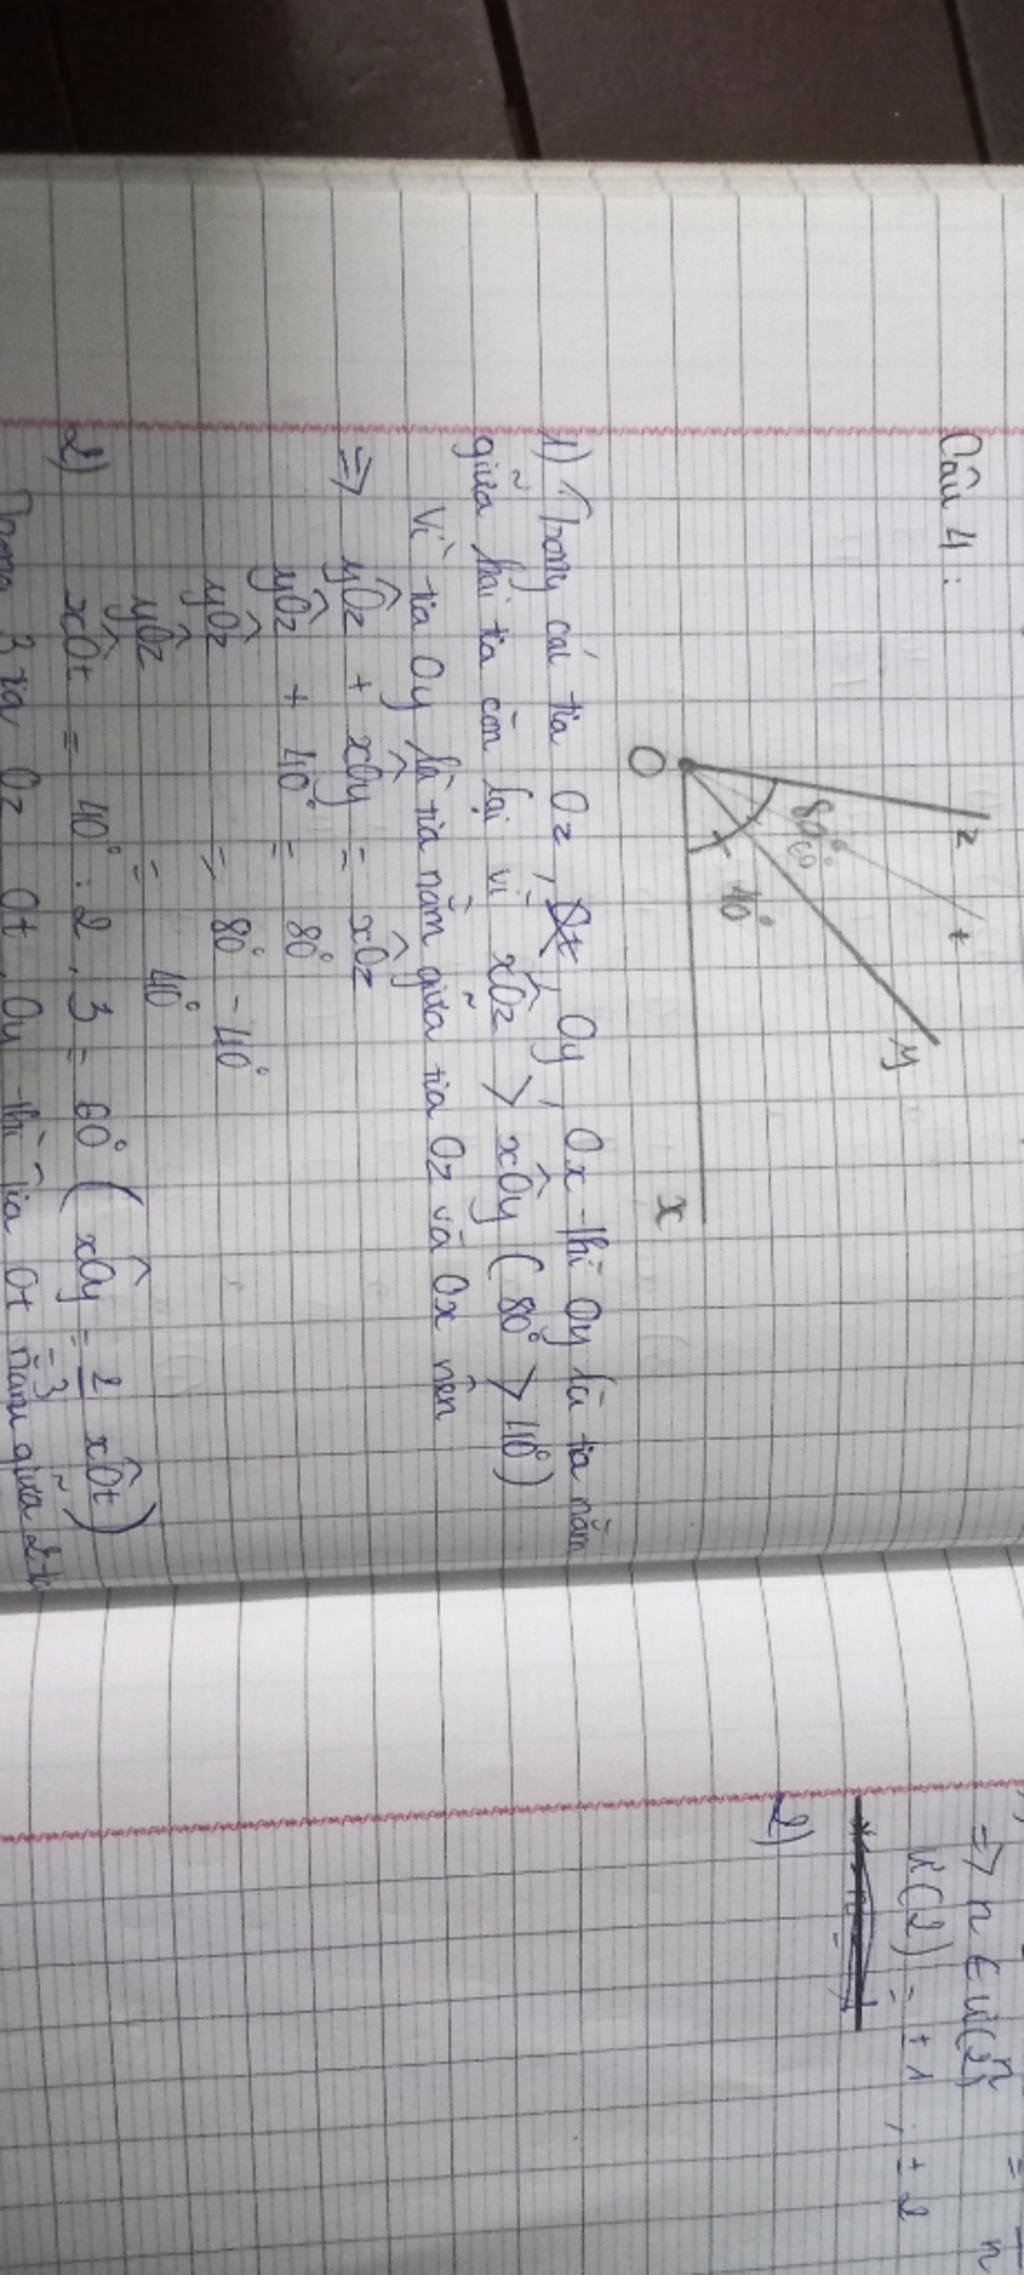 Câu 4:
z
t
y
80°
60°
40°
O
x
1) Trong các tia Oz, Oy, Ox thì Oy là tia nằm
giữa hai tia còn lại vì xÔz > xÔy (80° > 40°)
Vì tia Oy là tia nằm giữa tia Oz và Ox nên
=> yÔz + xÔy = xÔz
yÔz + 40° = 80°
yÔz = 80° - 40°
yÔz = 40°
2) xÔt = 40° : 2 . 3 = 60° (xÔy = 2/3 xÔt)
Trong 3 tia Oz, Ot, Oy thì tia Ot nằm giữa 2
=> n ∈ Ư(2)
Ư(2) = ±1 ; ±2
2)